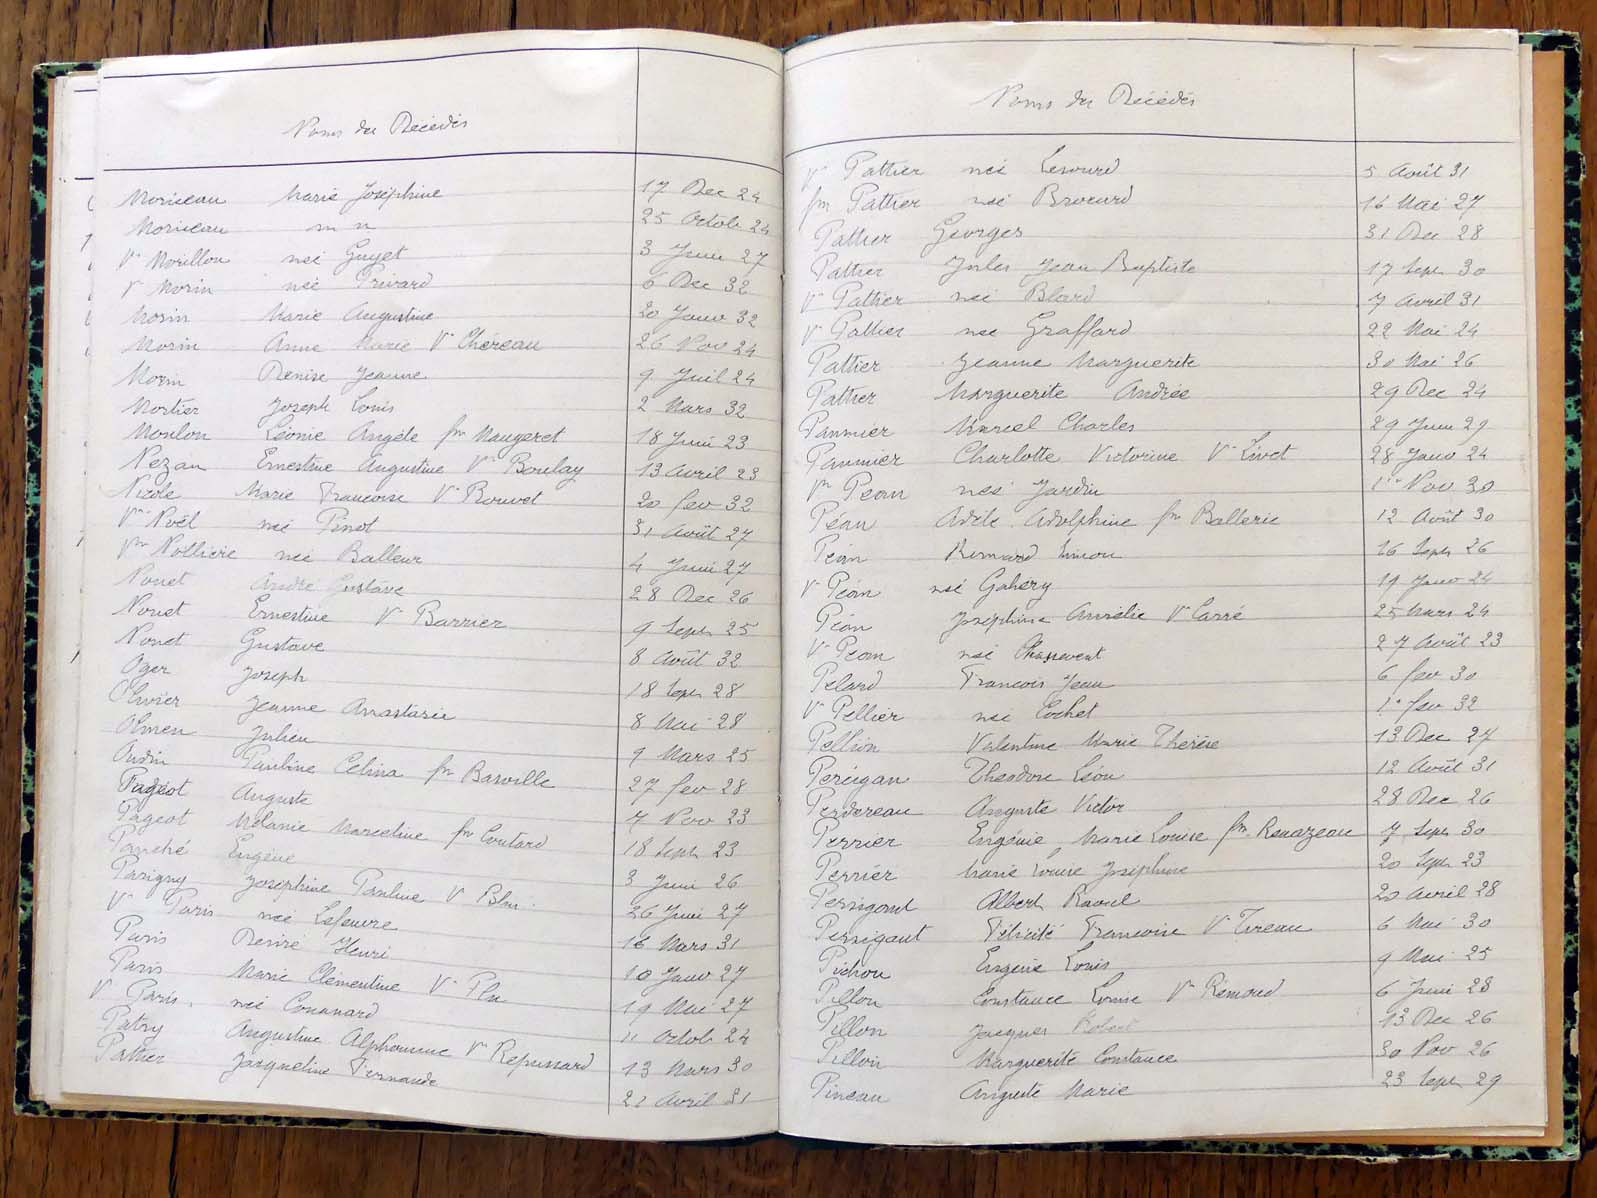 Noms des Décédés
Moriseau Marie Joséphine 17 Dec 24
Moriseau m n 25 Octob 24
Ve Morillon née Guyet 3 Juin 27
Ve Morin née Privard 6 Dec 32
Morin Marie Augustine 20 Janv 32
Morin Anne Marie Ve Chéreau 26 Nov 24
Morin Denise Jeanne 9 Juil 24
Mortier Joseph Louis 2 Mars 32
Moulon Léonie Angéle fme Maugeret 18 Juin 23
Nezan Ernestine Augustine Ve Boulay 13 Avril 23
Nicole Marie Francoise Ve Bouvet 20 fev 32
Ve Noël née Pinot 31 Août 27
Ve Nolliere née Balleur 4 Juin 27
Nouet André Gustave 28 Dec 26
Nouet Ernestine Ve Barrier 9 Sept 25
Nouet Gustave 8 Août 32
Oger Joseph 18 Sept 28
Olivier Jeanne Anastasie 8 Mai 28
Olmen Julien 9 Mars 25
Oudin Pauline Celina fme Basville 27 fev 28
Pageot Auguste 7 Nov 23
Pageot Mélanie Marceline fme Coutard 18 Sept 23
Panché Eugène 3 Juin 26
Parigny Joséphine Pauline Ve 26 Juin 27
Ve Paris née Lefeuvre 16 Mars 31
Paris Desiré Henri 10 Janv 27
Paris Marie Clémentine Ve Plu 19 Mai 27
Ve Paris née Conanard 11 Octob 24
Patry Augustine Alphonsine Ve Repussard 13 Mars 30
Pattier Jacqueline Fernande 21 Avril 31
Noms des Décédés
Ve Pattier née Lesourd 5 Août 31
fme Pattier née Brocard 16 Mai 27
Pattier Georges 31 Dec 28
Pattier Jules Jean Baptiste 17 Sept 30
Ve Pattier née Blard 7 Avril 31
Ve Pattier née Graffard 22 Mai 24
Pattier Jeanne Marguerite 30 Mai 26
Pattier Marguerite Andrée 29 Dec 24
Paumier Marcel Charles 29 Juin 29
Paumier Charlotte Victorine Ve Livet 28 Janv 24
Ve Pean née Jardin 1er Nov 30
Péan Adèle Adolphine fme Ballerie 12 Août 30
Péan 16 Sept 26
Ve Péan née Gahery 19 Janv 24
Péan Joséphine Aurélie Ve Carré 25 Mars 24
Ve Pean née Chassevent 27 Août 23
Pelard Francois Jean 6 fev 30
Ve Pellier née Cochet 1er fev 32
Pellion Valentine Marie Thérèse 13 Dec 27
Peregan Théodore Léon 12 Août 31
Perdereau Auguste Victor 28 Dec 26
Perrier Eugénie Marie Louise fme Renazeau 7 Sept 30
Perrier Marie Louise Joséphine 20 Sept 23
Persigout Albert Raoul 20 avril 28
Persigaut Félicité Francoise Ve Tireau 6 Mai 30
Pichon Eugène Louis 9 Mai 25
Pillon Constance Louise Ve Rémond 6 Juin 28
Pillon Jacques Robert 13 Dec 26
Pillon Marguerite Constance 30 Nov 26
Pineau Auguste Marie 23 Sept 29